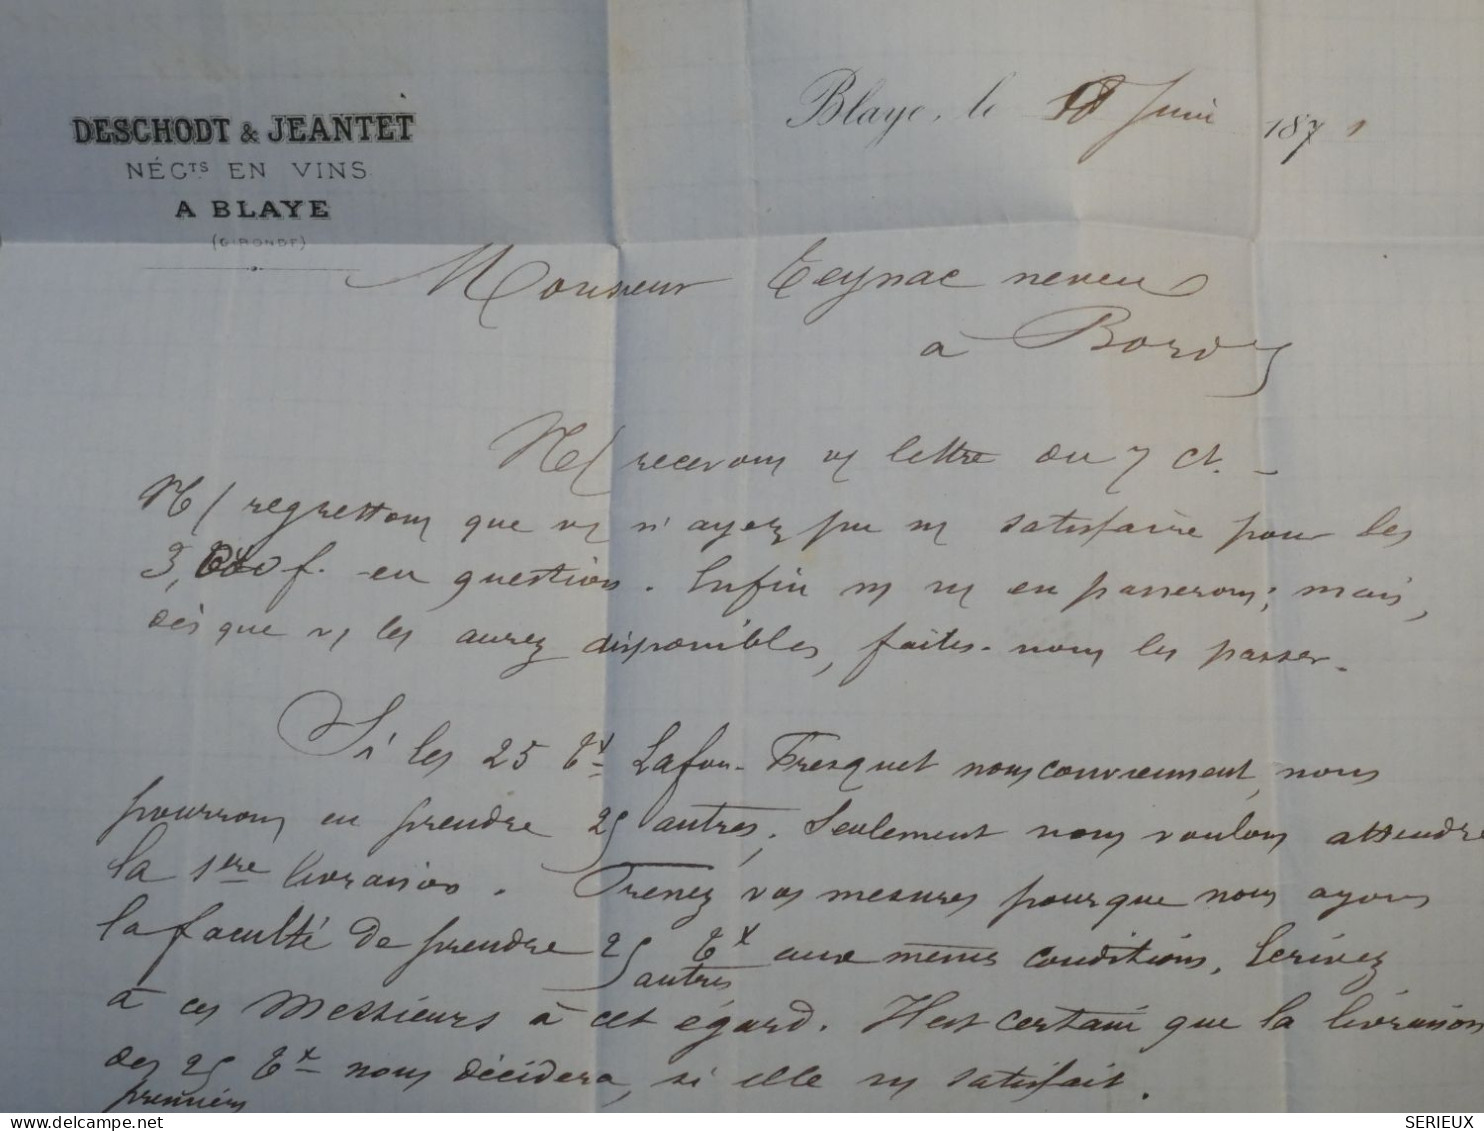 DESCHODT & JEANTET
NÉGts EN VINS
A BLAYE
(GIRONDE)
Blaye, le 18 Juin 1871
Monsieur Teynac neveu
à Bordx
N/ recevons vs lettre du 7 ct. -
N/ regrettons que vs n'ayez pu ns satisfaire pour les
3,000 f. en question. Enfin ns ns en passerons; mais,
dès que vs les aurez disponibles, faites-nous les passer.
Si les 25 tx Lafon-Fresquet nous conviennent, nous
pourrons en prendre 25 autres. Seulement nous voulons attendre
la 1ère livraison. Prenez vos mesures pour que nous ayons
la faculté de prendre 25 tx aux mêmes conditions. Ecrivez
autres
à ces Messieurs à cet égard. Il est certain que la livraison
des 25 tx nous décidera, si elle ns satisfait.
premiers
delcampe.net
SERIEUX